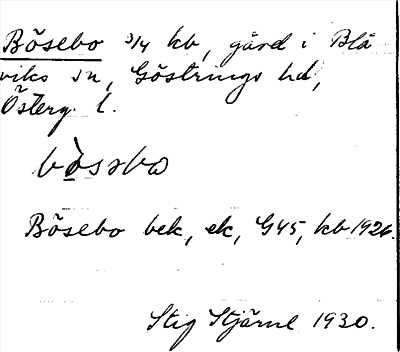 Bösebo 3/4 kb, gård i Blå
viks sn, Göstrings hd,
Österg. l.
bòsəbo
Bösebo bek, ek, G45, kb 1926.
Stig Stjärnl 1930.